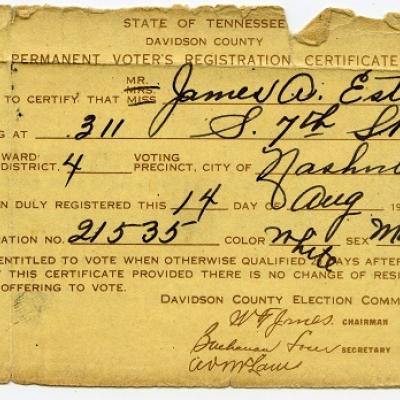 STATE OF TENNESSEE
DAVIDSON COUNTY
PERMANENT VOTER'S REGISTRATION CERTIFICATE
MR.
MRS.
MISS
TO CERTIFY THAT James A. Est
G AT 311 S. 7th St
WARD
DISTRICT, 4 VOTING
PRECINCT, CITY OF Nashvi
N DULY REGISTERED THIS 14 DAY OF Aug 19
ATION NO. 21535 COLOR White SEX M
ENTITLED TO VOTE WHEN OTHERWISE QUALIFIED DAYS AFTER
THIS CERTIFICATE PROVIDED THERE IS NO CHANGE OF RESI
OFFERING TO VOTE.
DAVIDSON COUNTY ELECTION COMM
W F Jones CHAIRMAN
Buchanan SECRETARY